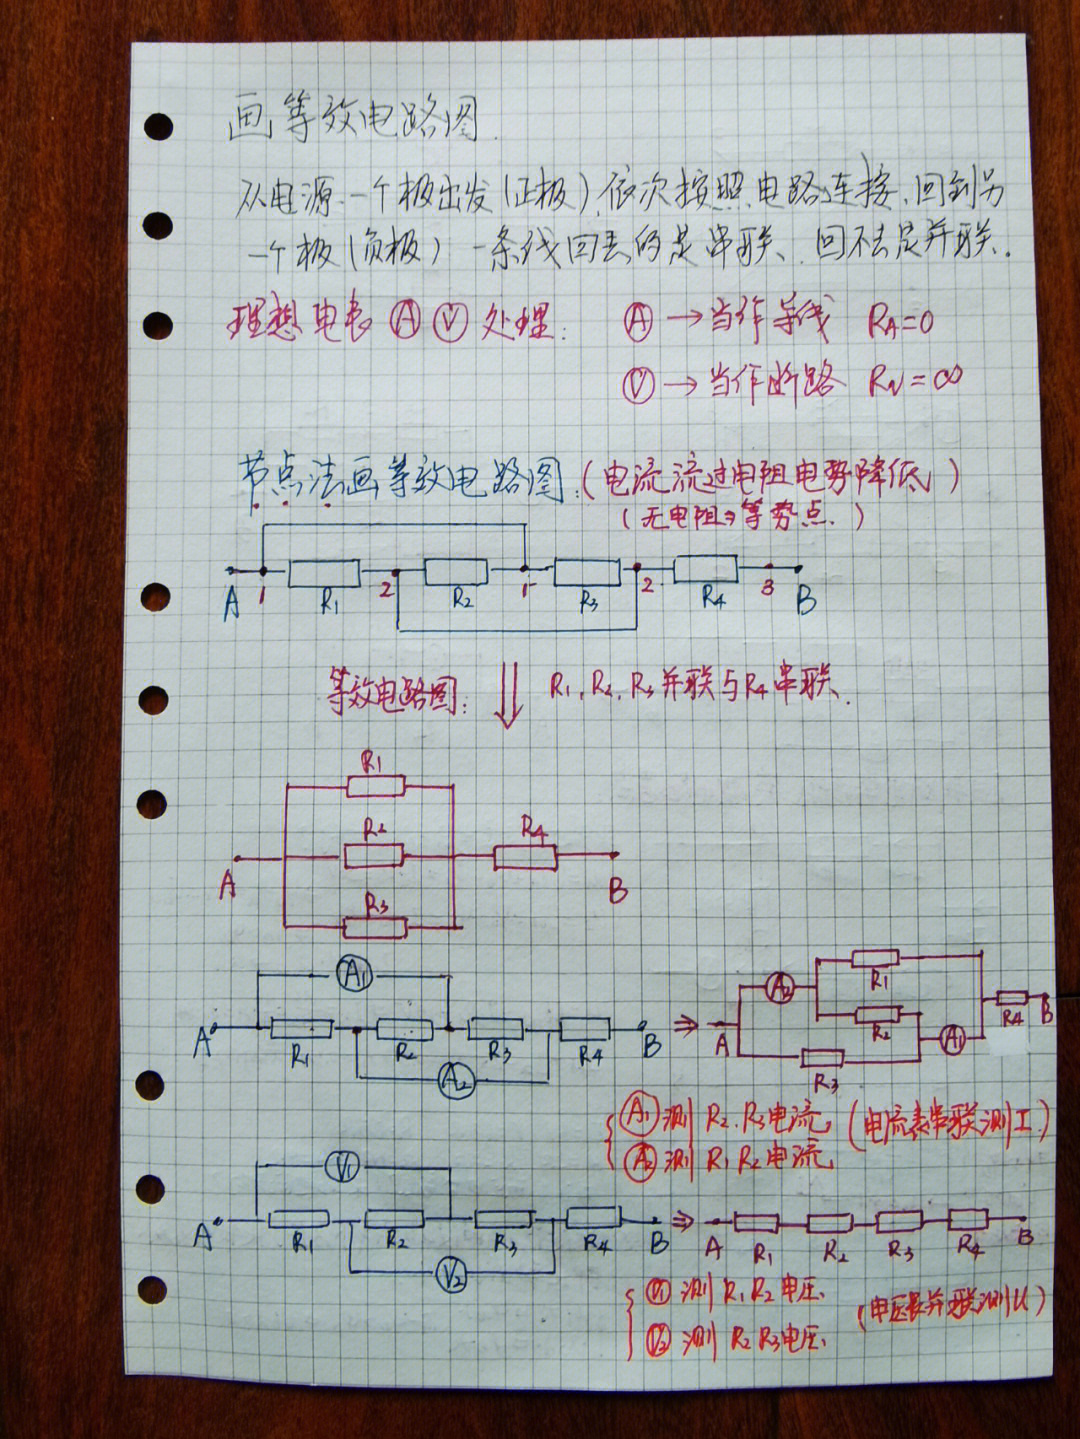 画等效电路图.
从电源一个极出发(正极)依次按照电路连接,回到另
一个极(负极) 一条线回去的是串联、回不去是并联.
理想电表 Ⓐ Ⓥ 处理: Ⓐ → 当作导线 RA=0
Ⓥ → 当作断路 RV=∞
节点法画等效电路图.(电流流过电阻电势降低)
(无电阻⇒等势点.)
A 1 R1 2 R2 1 R3 2 R4 3 B
等效电路图: R1、R2、R3并联与R4串联.
R1
R2 R4
A B
R3
A A1 R1 R2 R3 R4 A2 B ⇒ A A2 R1 R2 R3 A1 R4 B
A1 测 R2、R3电流 (电流表串联测I)
A2 测 R1 R2 电流
A V1 R1 R2 R3 R4 V2 B ⇒ A R1 R2 R3 R4 B
V1 测 R1 R2 电压. (电压表并联测U)
V2 测 R2 R3电压.